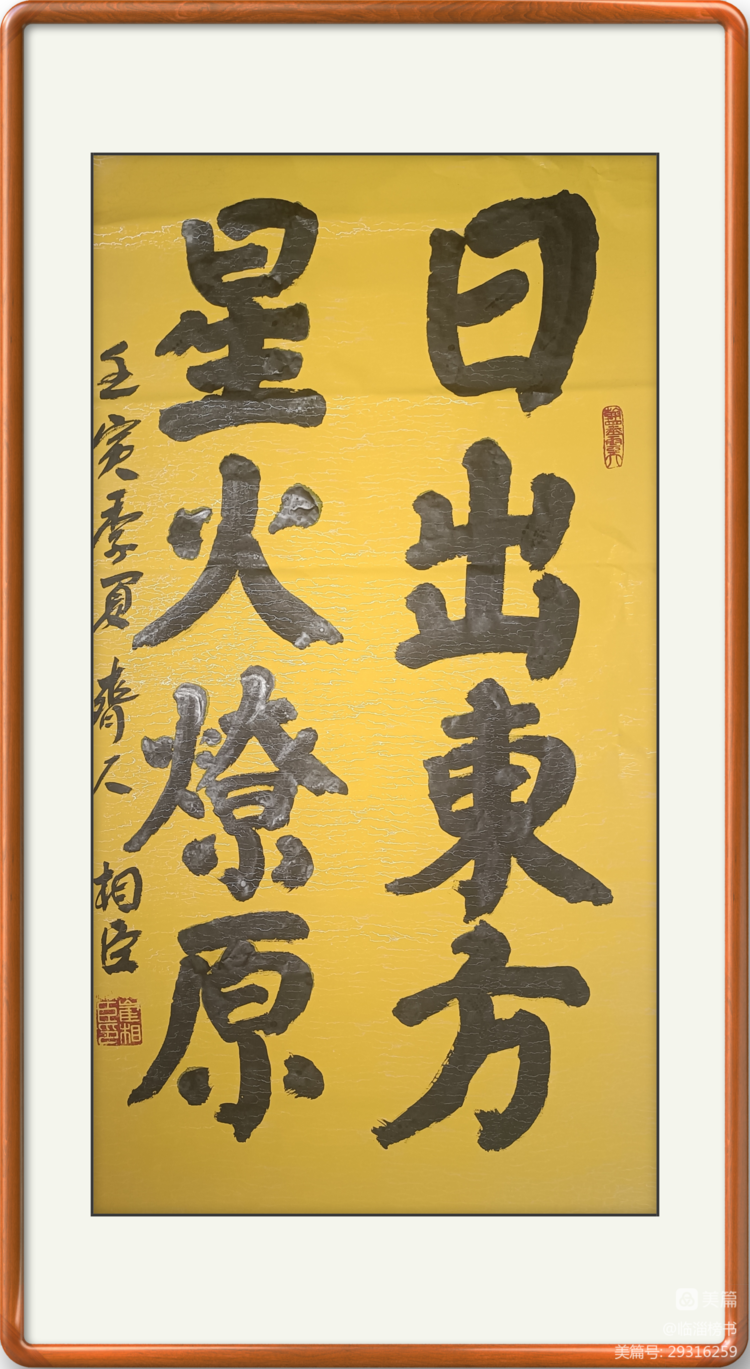 日出東方
星火燎原
壬寅季夏 齊人 相臣
崔相臣印
美篇
美篇号: 29316259